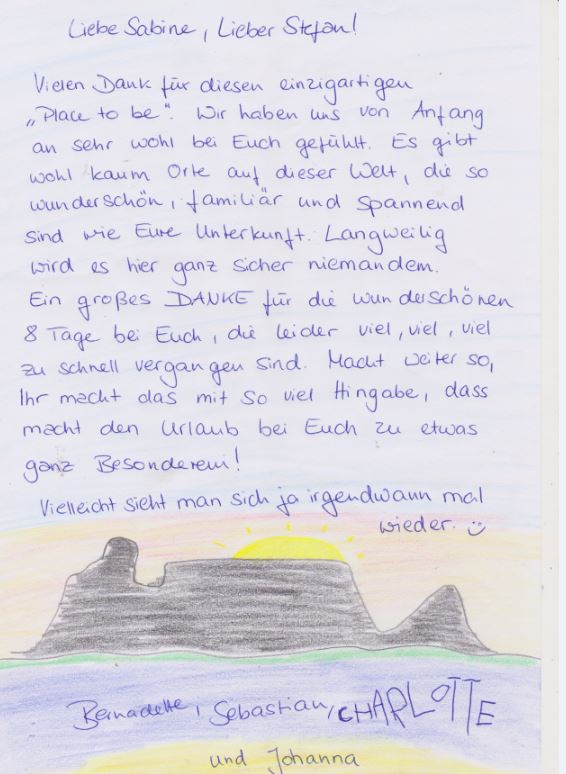 Liebe Sabine, Lieber Stefan!
Vielen Dank für diesen einzigartigen
„Place to be“. Wir haben uns von Anfang
an sehr wohl bei Euch gefühlt. Es gibt
wohl kaum Orte auf dieser Welt, die so
wunderschön, familiär und spannend
sind wie Eure Unterkunft. Langweilig
wird es hier ganz sicher niemandem.
Ein großes DANKE für die wunderschönen
8 Tage bei Euch, die leider viel, viel, viel
zu schnell vergangen sind. Macht weiter so,
Ihr macht das mit so viel Hingabe, dass
macht den Urlaub bei Euch zu etwas
ganz Besonderem!
Vielleicht sieht man sich ja irgendwann mal
wieder. ☺
Bernadette, Sebastian, CHARLOTTE
und Johanna